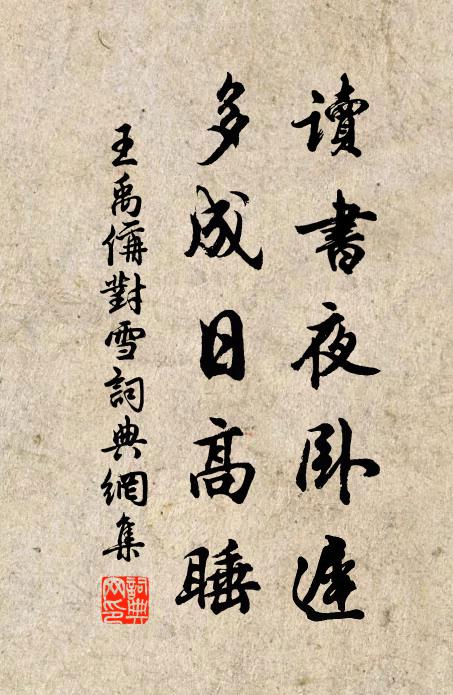 讀書夜卧遲
多成日高睡
王禹偁對雪詞典網集
詞典網印